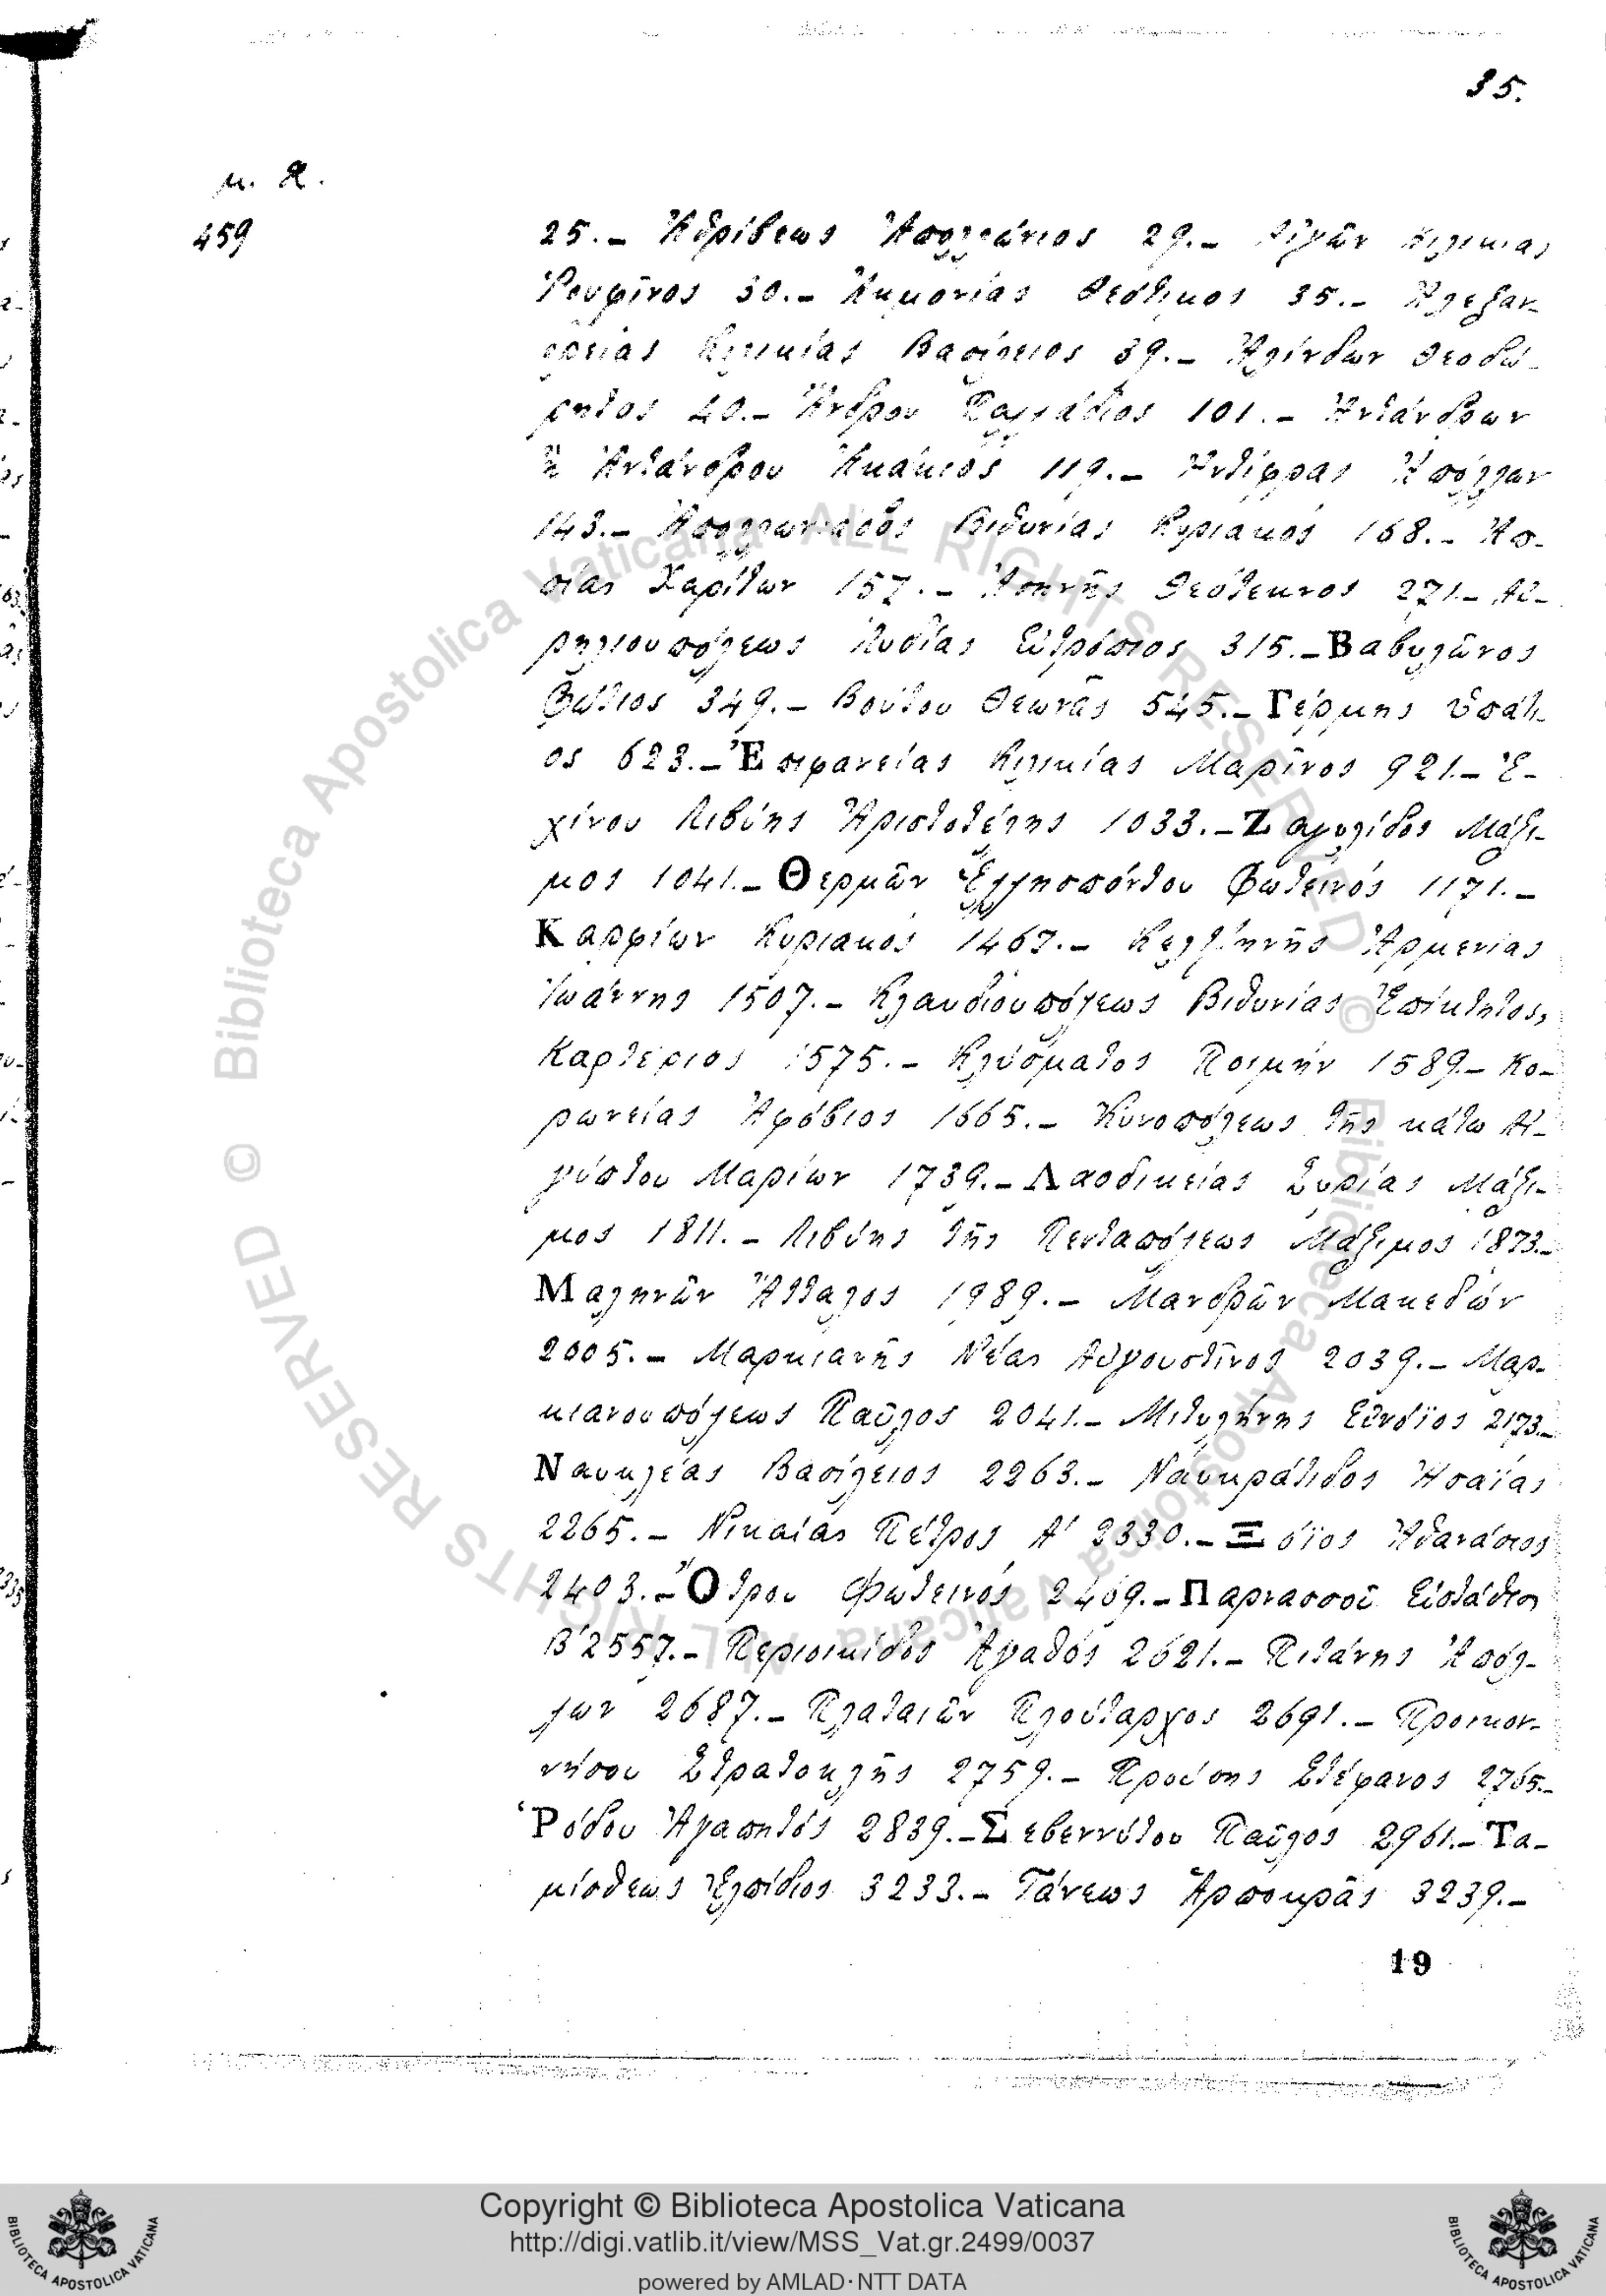 35.
μ. Χ.
459
25.– Ἀθρίβεως Ἀπολλώνιος 29.– Αἰγῶν Κιλικίας
Ῥουφῖνος 30.– Ἀκμονίας Θεότιμος 35.– Ἀλεξαν-
δρείας Κιλικίας Βασίλειος 39.– Ἀλίνδων Θεοδώ-
ρητος 40.– Ἄνδρου Παλλάδιος 101.– Ἀντάνδρων
ἢ Ἀντάνδρου Ἀκάκιος 119.– Ἀντίφρας Ἀπόλλων
143.– Ἀπολλωνιάδος Βιθυνίας Κυριακός 168.– Ἀπ-
πίας Χαρίτων 157.– Ἀσηνῆς Θεότεκνος 271.– Αὐ-
ρηλιουπόλεως Λυδίας Εὐτρόπιος 315.– Βαβυλῶνος
Φώτιος 349.– Βούτου Θεωνᾶς 545.– Γέρμης Ὑπάτι-
ος 623.– Ἐπιφανείας Κιλικίας Μαρῖνος 921.– Ἐ-
χίνου Λιβύης Ἀριστοτέλης 1033.– Ζαγυλίδος Μάξι-
μος 1041.– Θερμῶν Ἑλλησπόντου Φωτεινός 1171.–
Καρφίων Κυριακός 1467.– Κελτζηνῆς Ἀρμενίας
Ἰωάννης 1507.– Κλαυδιουπόλεως Βιθυνίας Ἐπίκτητος,
Καρτέριος 1575.– Κλύσματος Ποιμήν 1589.– Κο-
ρωνείας Ἀφόβιος 1665.– Κυνοπόλεως τῆς κάτω Αἰ-
γύπτου Μαρίων 1739.– Λαοδικείας Συρίας Μάξι-
μος 1811.– Λιβύης τῆς Πενταπόλεως Μάξιμος 1873.–
Μαληνῶν Ἄτταλος 1989.– Μανδρῶν Μακεδών
2005.– Μαρκιανῆς Νέας Αὐγουστῖνος 2039.– Μαρ-
κιανουπόλεως Παῦλος 2041.– Μιτυλήνης Εὐνόϊος 2173.–
Νακολέας Βασίλειος 2263.– Ναυκράτιδος Ἠσαΐας
2265.– Νικαίας Πέτρος Α' 2330.– Ξόϊος Ἀθανάσιος
2403.– Ὄτρου Φωτεινός 2469.– Παρνασσοῦ Εὐστάθιος
Β' 2557.– Περιοικίδος Ἀγαθός 2621.– Πιτάνης Ἀπόλ-
λων 2687.– Πλαταιῶν Πλούταρχος 2691.– Προικον-
νήσου Στρατοκλῆς 2759.– Προύσης Στέφανος 2765.–
Ῥόδου Ἀγαπητός 2839.– Σεβεννύτου Παῦλος 2961.– Τα-
μίαθεως Ἐλπίδιος 3233.– Τάνεως Ἁρποκρᾶς 3239.–
19
Copyright © Biblioteca Apostolica Vaticana
http://digi.vatlib.it/view/MSS_Vat.gr.2499/0037
powered by AMLAD·NTT DATA